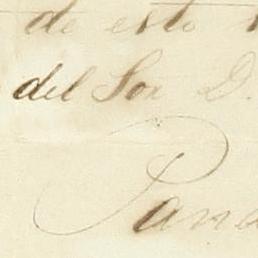 de esto
del Sor D.
Pana